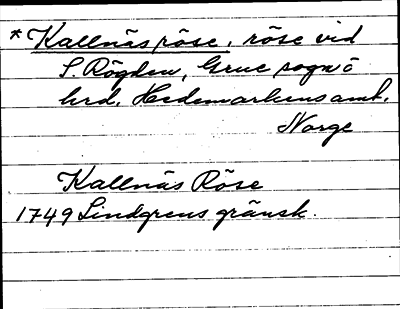 *Kallnäs röse, röse vid
S. Rögden, Grue sogn o
hrd, Hedemarkens amt,
Norge
Kallnäs Röse
1749 Lindgrens gränsk.